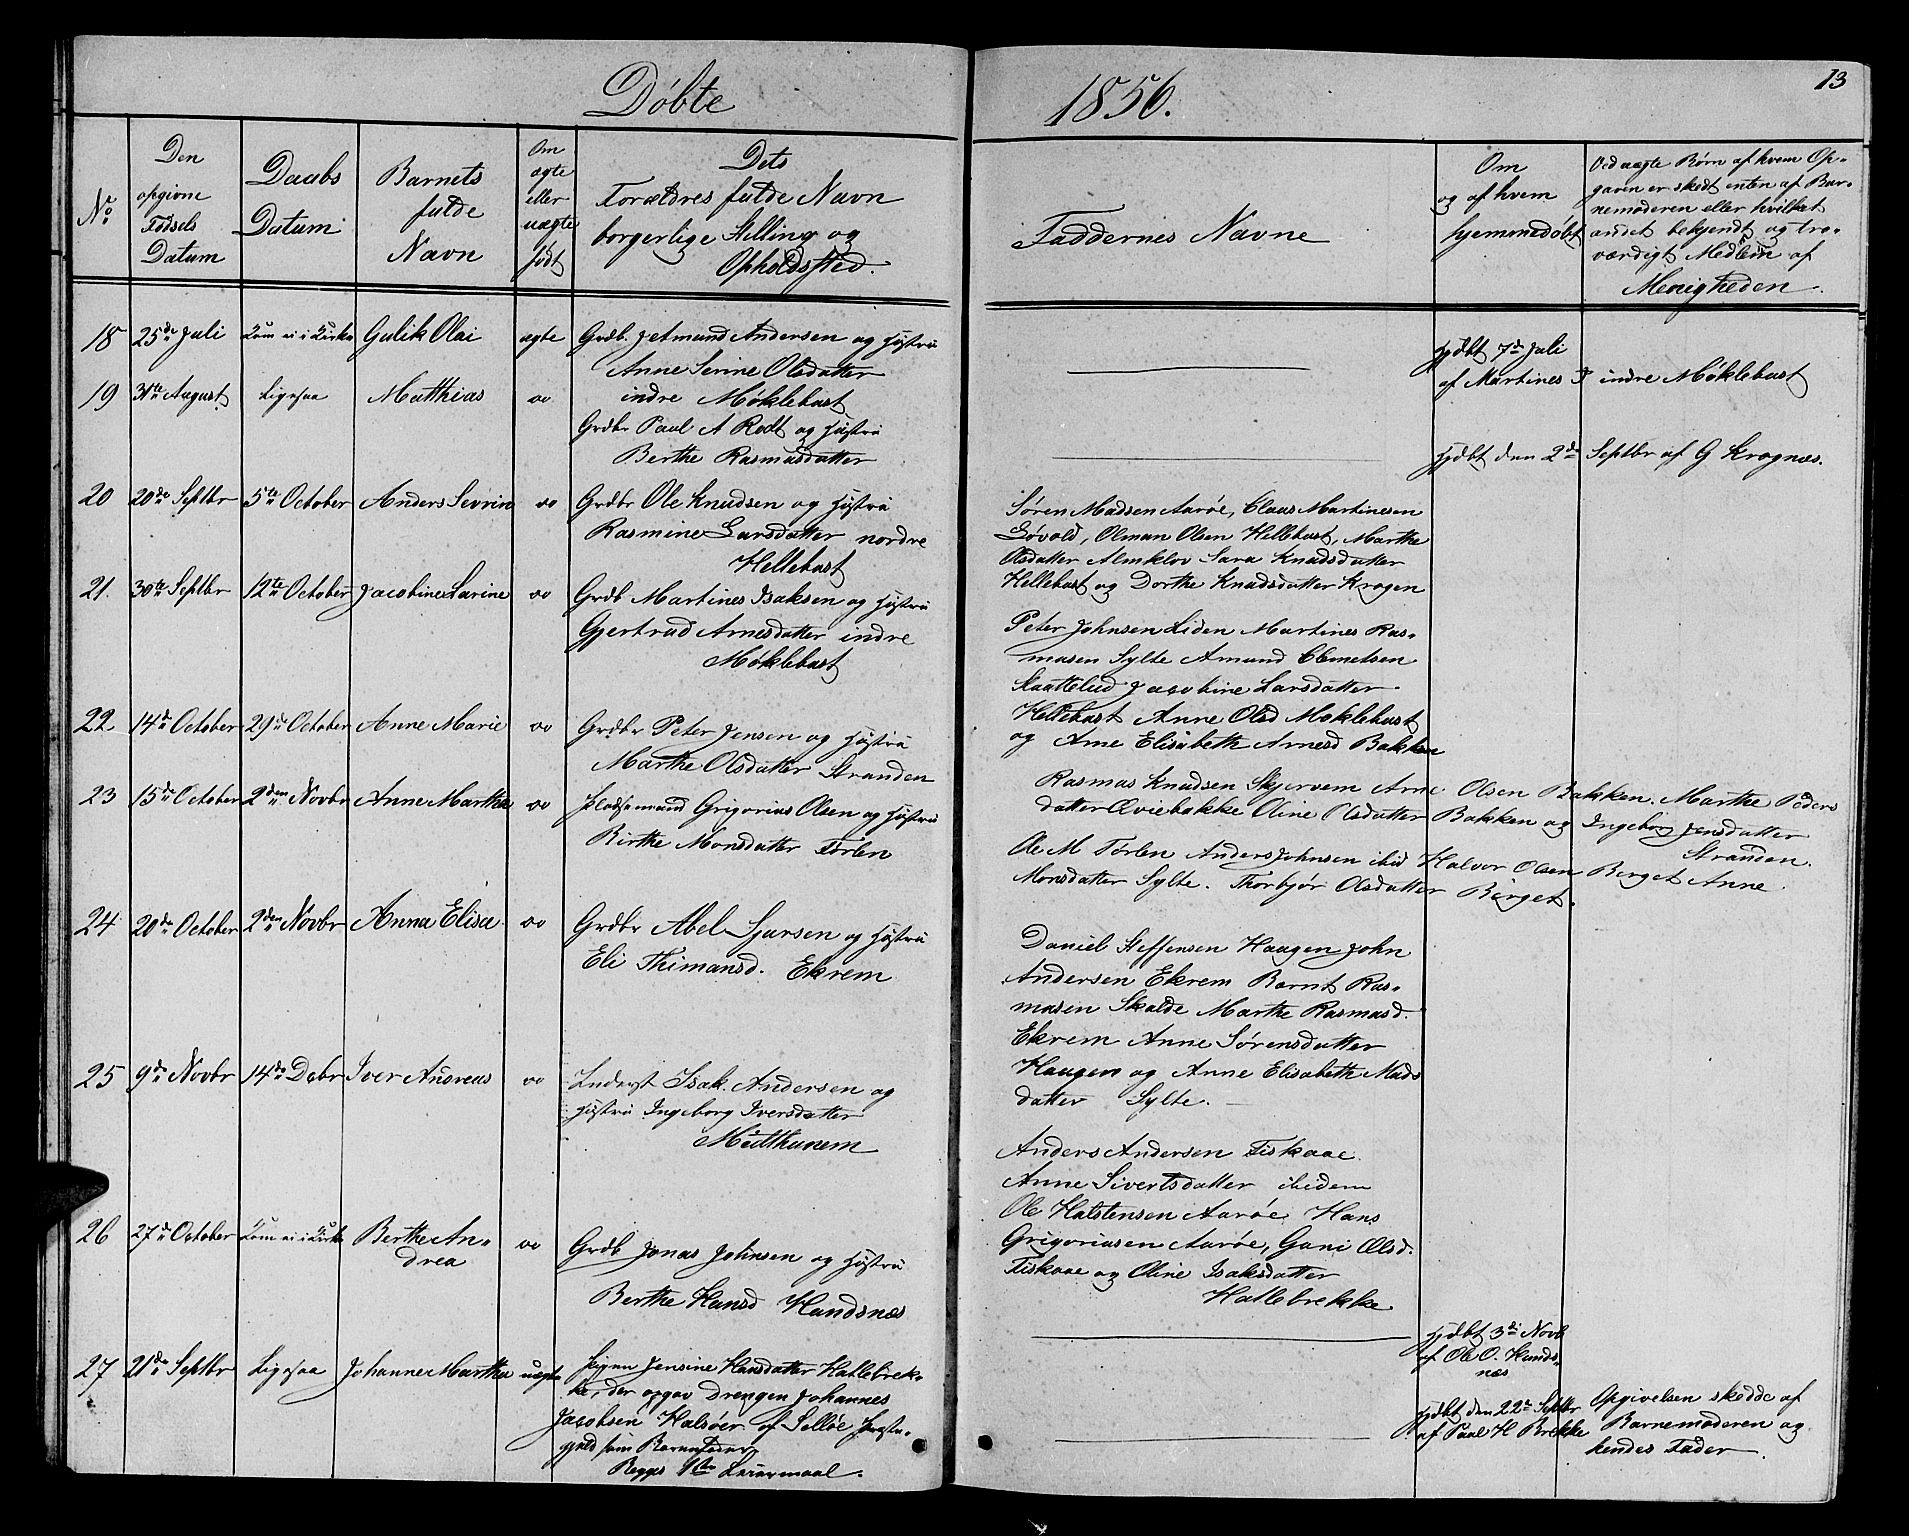 Døbte
1856.
13
No
Den
opgivne
Fødsels
Datum
Daabs
Datum
Barnets
fulde
Navn
Om
ægte
eller
uægte
født
Dets
Forældres fulde Navn
borgerlige Stilling og
Opholdssted.
Faddernes Navne
Om
og af hvem
hjemmedøbt
Ved uægte Børn af hvem Op-
gaven er skedt enten af Bar-
nemoderen eller hvilket
andet bekjendt og tro-
værdigt Medlem af
Menigheden.
18 25de Juli Kom ei i Kirke Gulik Olai ægte Grdb. Jetmund Andersen og Hustru
Anne Serine Olsdatter
indre Møklebust
hjdbt 7de Juli
af Martines I indre Møklebust
19 31te August Ligesaa Matthias oo
Grdbr Paul A Rødt og Hustru
Berthe Rasmusdatter
hjdbt den 2de Septbr af G Krognæs.
20 20de Septbr 5te October Anders Sevrin oo Grdbr Ole Knudsen og Hustru
Rasmine Larsdatter nordre
Hellebust
Søren Madsen Aarøe, Claus Martinesen
Løvold, Olman Olsen Hellebust, Marthe
Olsdatter Almklov Sara Knudsdatter
Hellebust og Dorthe Knudsdatter Krogen
21. 30te Septbr 12te October Jacobine Larine oo Grdb Martines Isaksen og Hustru
Gjertrud Arnesdatter indre
Møklebust
Peter Johnsen Liden Martines Ras-
musen Sylte Amund Clemetsen
Skaattelud Jacobine Larsdatter
Hellebust Anne Olsd Møklebust
og Arne Elisabeth Arnesd Bakken
22 14de October 29de October Anne Marie oo Grdbr Peter Jensen og Hustru
Marthe Olsdatter Stranden
Rasmus Knudsen Skjervem Arne Olsen Bakken. Marthe Peders
datter Qviebakke Oline Olsdatter Bakken og Ingeborg Jensdatter
Stranden.
23 15de October 2den Novbr Anne Marthe oo Pladsemand Grigorius Olsen og Hustru
Birthe Monsdatter Tørlen
Ole M Tørlen Anders Johnsen ibid Halvor Olsen Berget Anne
Monsdatter Sylte. Thorbjør Olsdatter Berget.
24 20de October 2den Novbr Anna Elisa oo Grdbr Abel Sjursen og Hustru
Eli Thimansd. Ekrem
Daniel Steffensen Haugen John
Andersen Ekrem Bernt Ras-
musen Skalde Marthe Rasmusd.
Ekrem Anne Sørensdatter
Haugen og Anne Elisabeth Mads
datter Sylte.
25 9de Novbr 14de Debr Iver Andreas oo Inderst Isak Andersen og
Hustru Ingeborg Iversdatter
Multhunem
Anders Andersen Fiskaae
Anne Sivertsdatter ibidem
Ole Halstensen Aarøe, Hans
Grigoriusen Aarøe, Guni Olsd.
Fiskaae og Oline Isaksdatter
Hatlebrekke
26 27de October Kom ei i Kirke Berthe An-
drea
oo Grdb Jonas Johnsen og Hustru
Berthe Hansd Hundsnæs
hjdbt 3de Novb
af Ole O. Hunds-
næs
27 21de Septbr Ligesaa Johanne Marthe uægte Pigen Jensine Hansdatter Hatlebrek-
ke, der opgav Drengen Johannes
Jacobsen Halsøer af Selløe Præste-
gjeld som Barnefader
Begges 1ste Leiermaal.
hjdbt den 22de Septbr
af Paul H Brekke
Opgivelsen skedde af
Barnemoderen og
hendes Fader